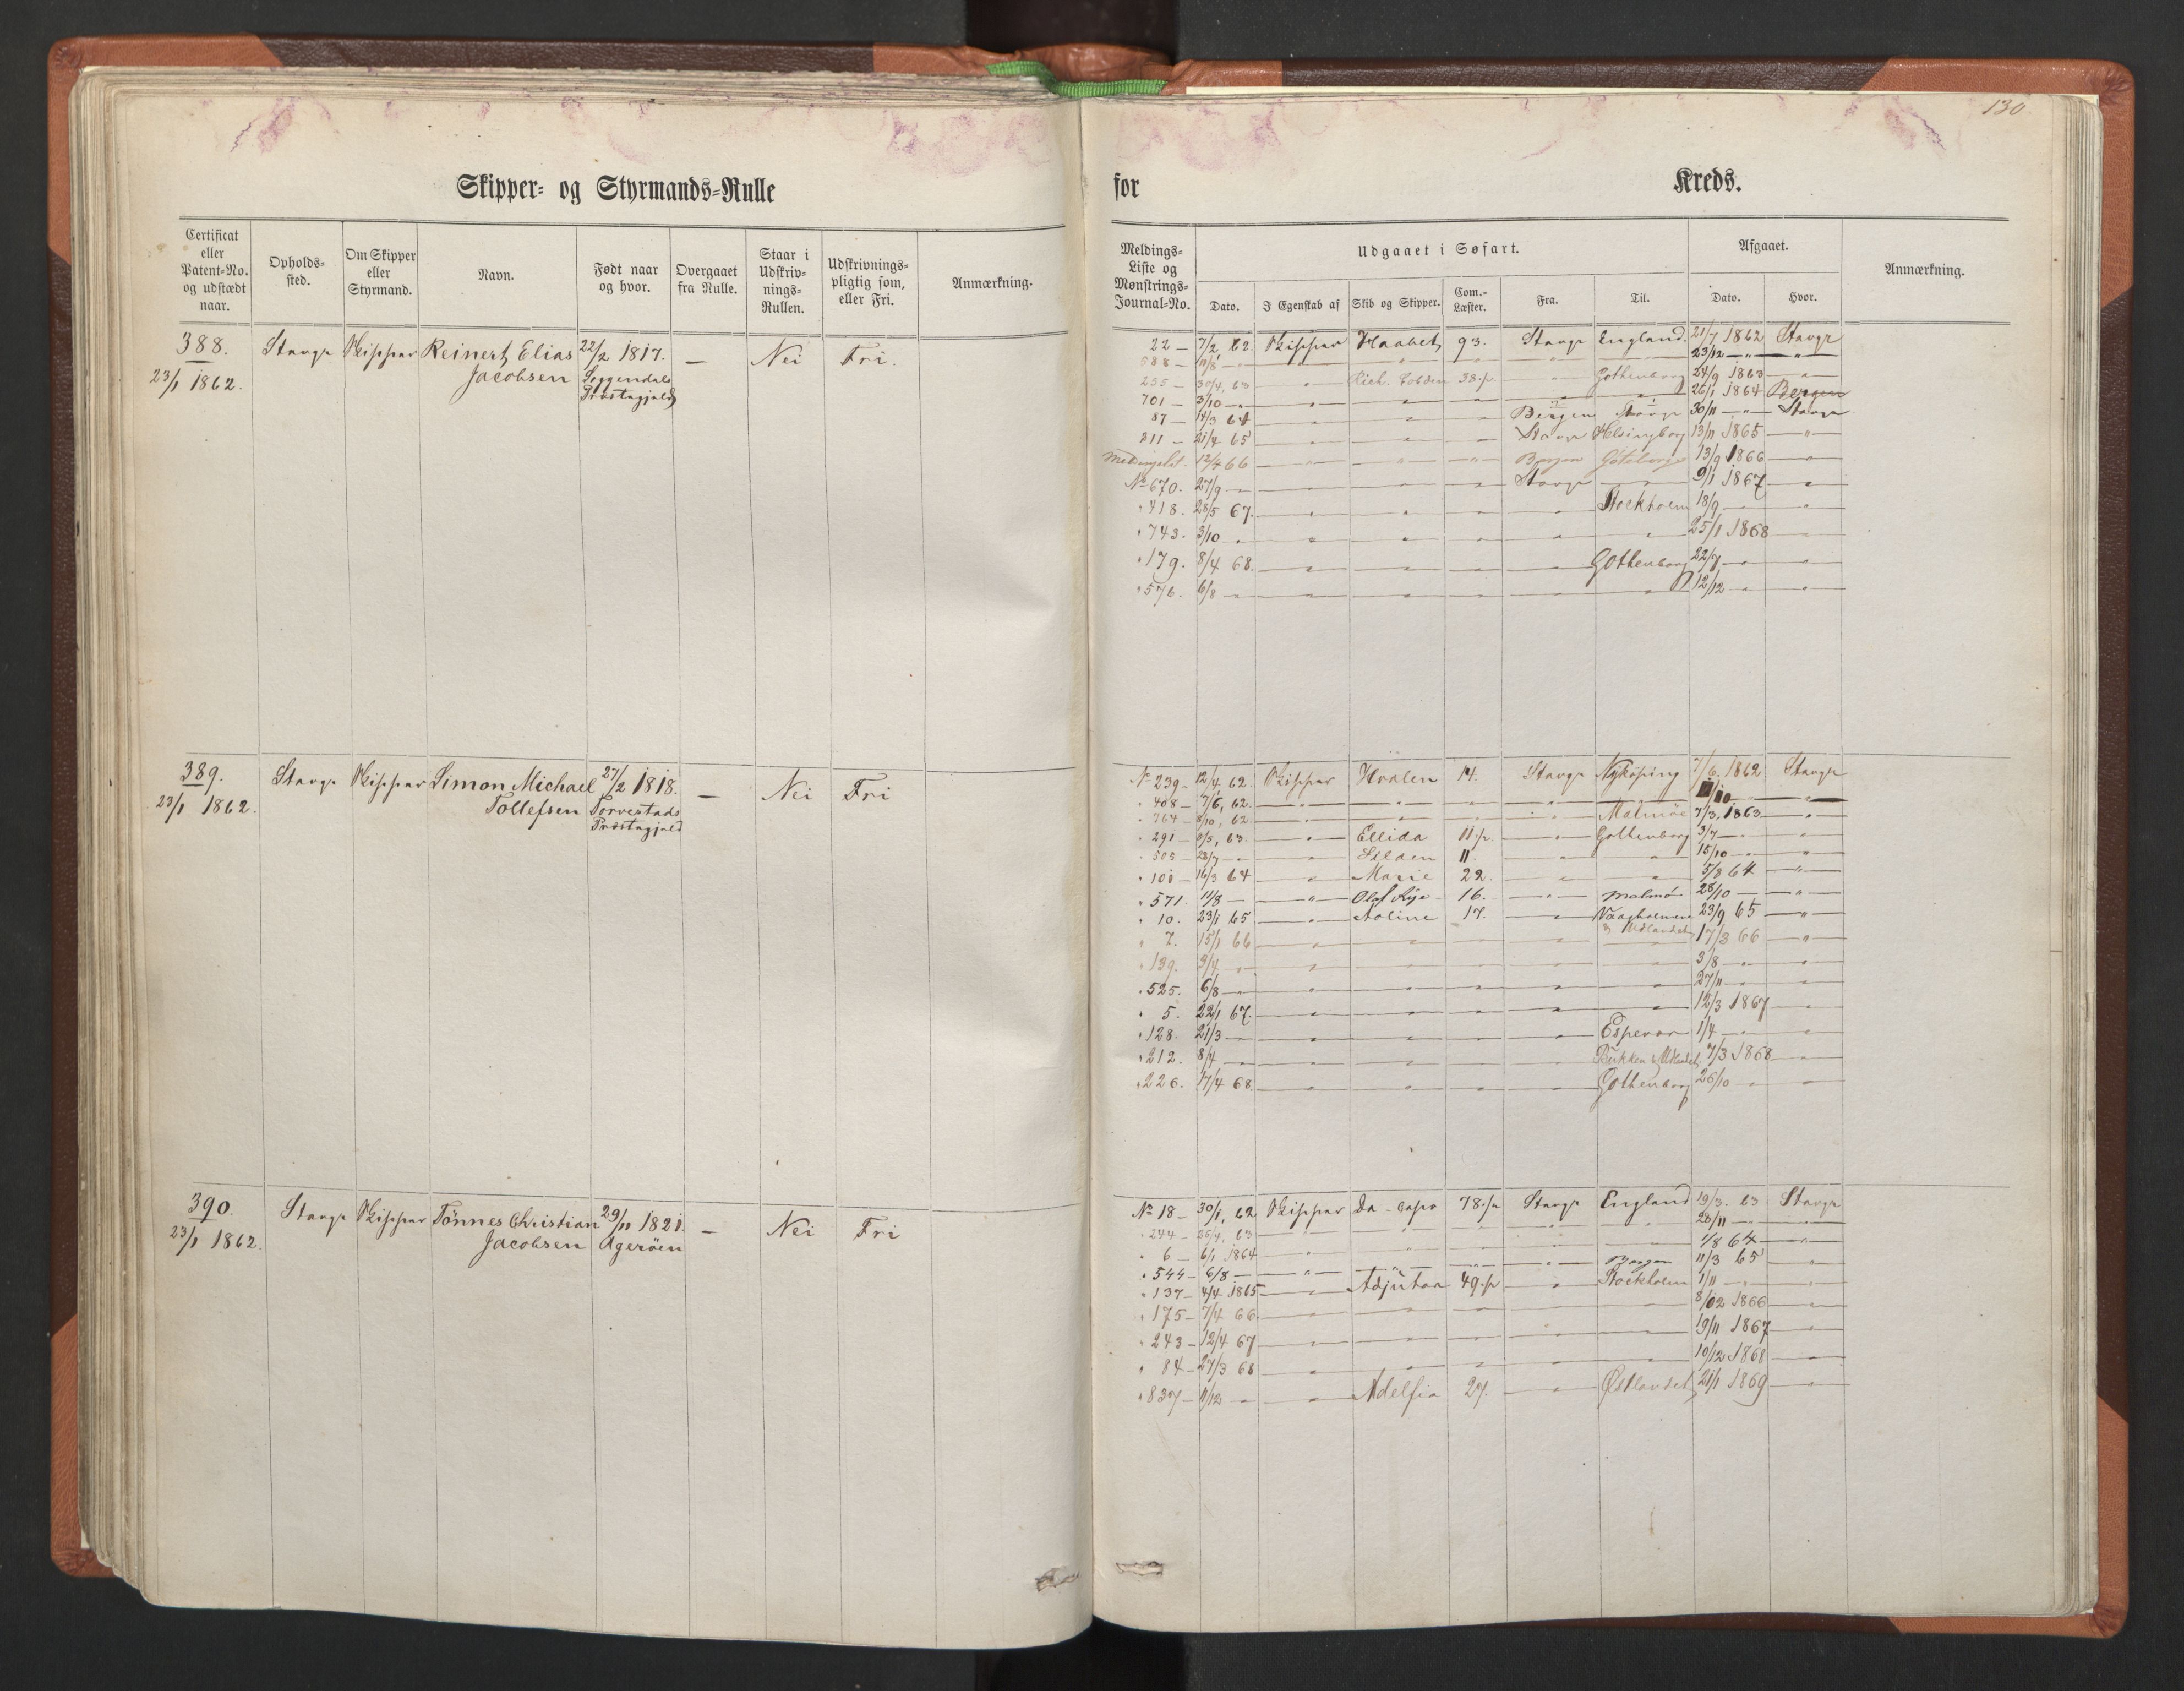 130
Skipper- og Styrmands-Rulle
for Kreds.
Certificat eller Patent-No. og udstædt naar. | Opholds-sted. | Om Skipper eller Styrmand. | Navn. | Født naar og hvor. | Overgaaet fra Rulle. | Staar i Udskriv-nings-Rullen. | Udskrivnings-pligtig som, eller Fri. | Anmærkning.
388. Stavgr Skipper Reinert Elias 22/2 1817. — Nei Fri.
23/1 1862. Jacobsen Soggendals
Præstegjeld
389. Stavgr Skipper Simon Michael 27/2 1818. — Nei Fri
23/1 1862. Tollefsen Torvestads
Præstegjeld
390. Stavgr Skipper Tönnes Christian 29/11 1821. — Nei Fri
23/1 1862. Jacobsen Ageröen
Meldings-Liste og Mønstrings-Journal-No. | Udgaaet i Søfart. | Afgaaet. | Anmærkning.
Dato. | I Egenskab af | Skib og Skipper. | Com.-Læster. | Fra. | Til. | Dato. | Hvor.
22 — 7/2 62. Skipper Haabet 93. Stavgr England. 21/7 1862 Stavgr
588 — 11/8 — " — — — — — 23/12 — " — "
255 — 30/4, 63 " Rich. Cobden 38.p. " Gothenborg 24/9 1863 — " —
701 — 3/10 — " — — — — — — 26/1 1864 Bergen
87 — 14/3 64 — — — Bergen Stavgr 30/11 — " — Stavgr
211 — 21/4 65 — — — Stavgr Helsingborg 13/11 1865 — " —
Meldingslist. 12/4 66 — " — " — " — Bergen Göteborg 13/9 1866 — " —
No 670. 27/9 — — — — Stavgr — 9/1 1867 — " —
" 418. 28/5 67. — — — — Stockholm 18/9 — " — " —
" 743. 3/10 — " — " — " — " — " — " 25/1 1868 —
" 179. 8/4 68. — — — — Gothenborg 22/7 — " — " —
" 576. 6/8 — " — " — " — " — " — " 12/12 — " — " —
No 239 — 12/4. 62. Skipper Hvalen 14. Stavgr Nyköping 7/6. 1862 Stavgr
" 408 — 7/6, 62. — — — — — /10 — " —
" 764 — 8/10, 62 — — — — Malmöe 7/3, 1863 — " —
" 291 — 8/5, 63. — " — Ellida 11.p. — " — Gothenborg 3/7 — " — " —
" 505 — 28/7 — " — Silden 11. — — 15/10 — " — " —
" 101 — 16/3 64 — " — Marie 22. — — 5/8 64 — " —
" 571. 11/8 — — " — Olaf Rye 16. — " — Malmö 28/10 — — " —
" 10. 23/1 65 — " — Aoline 17. — " — Vaagholmene 23/9 65 — " —
& Udlandet
" 7. 15/1 66 — " — — — — — 17/3 66 — " —
" 139. 3/4 — " — — — — — 3/8 — " — " —
" 525. 6/8 — " — — — — — 27/11 — " — " —
" 5. 22/1 67. — " — — — — — 12/3 1867 — " —
" 128. 21/3 — — " — — — — Espevær 1/4 — " — " —
" 212. 8/4 — — — — — & Udlandet 7/3 1868 — " —
" 226. 17/4 68. — — — — Gothenborg 26/10 — " — " —
No 18 — 30/1, 62 Skipper Da-capo 78.p. Stavgr England 19/3. 63 Stavgr
" 244 — 25/4, 63 — " — — — — — 28/11 — " — " —
" 6 — 6/1 1864 — " — — — — — 1/8 64 — " —
" 544 — 6/8 — — " — — — — Bergen 11/3 65 — " —
" 137 — 4/4 1865 — " — Adjutor 49.p — " — Stockholm 1/11 — " — " —
" 175 — 7/4 66. — " — — — — — 8/12 1866 — " —
" 243 — 12/4 67 — " — — — — — 19/11 1867 — " —
" 84 — 27/3 68 — " — — — — — 10/12 1868 — " —
" 837 — 11/12 — " — Adelfia 27. — " — Østlandet 21/1 1869 — " —